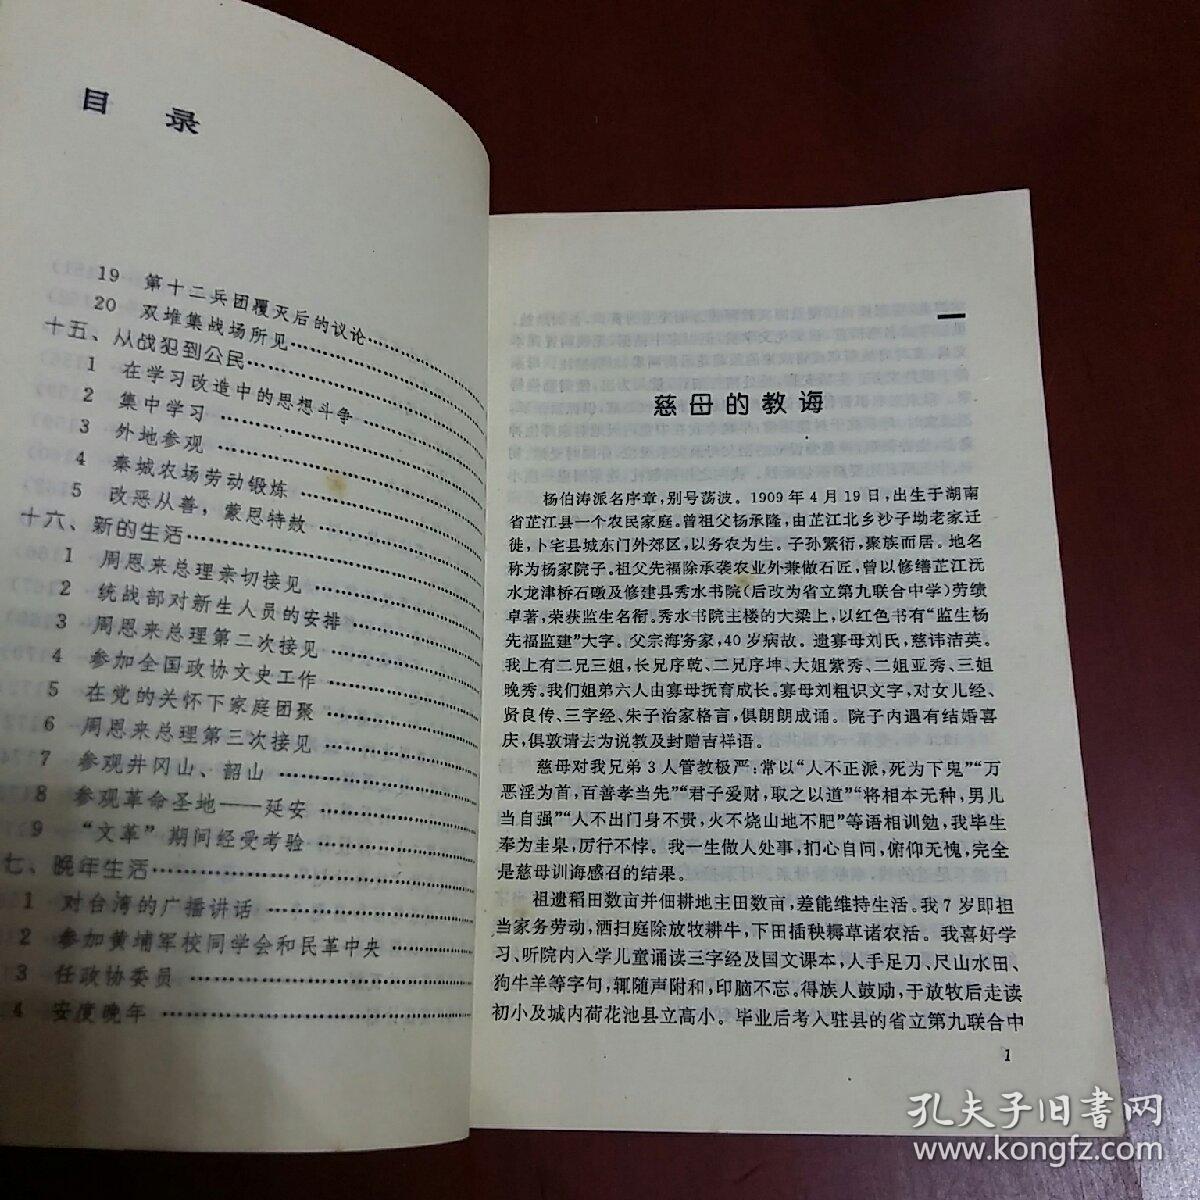 目 录
19 第十二兵团覆灭后的议论
20 双堆集战场所见
十五、从战犯到公民
1 在学习改造中的思想斗争
2 集中学习
3 外地参观
4 秦城农场劳动锻炼
5 改恶从善，蒙恩特赦
十六、新的生活
1 周恩来总理亲切接见
2 统战部对新生人员的安排
3 周恩来总理第二次接见
4 参加全国政协文史工作
5 在党的关怀下家庭团聚
6 周恩来总理第三次接见
7 参观井冈山、韶山
8 参观革命圣地——延安
9 “文革”期间经受考验
七、晚年生活
1 对台湾的广播讲话
2 参加黄埔军校同学会和民革中央
3 任政协委员
4 安度晚年
一
慈母的教诲
杨伯涛派名序章，别号荡波。1909年4月19日，出生于湖南
省芷江县一个农民家庭。曾祖父杨承隆，由芷江北乡沙子坳老家迁
徙，卜宅县城东门外郊区，以务农为生。子孙繁衍，聚族而居。地名
称为杨家院子。祖父先福除承袭农业外兼做石匠，曾以修缮芷江沅
水龙津桥石礅及修建县秀水书院（后改为省立第九联合中学）劳绩
卓著，荣获监生名衔。秀水书院主楼的大梁上，以红色书有“监生杨
先福监建”大字。父宗海务家，40岁病故。遗寡母刘氏，慈讳洁英。
我上有二兄三姐，长兄序乾、二兄序坤、大姐紫秀、二姐亚秀、三姐
晚秀。我们姐弟六人由寡母抚育成长。寡母刘粗识文字，对女儿经、
贤良传、三字经、朱子治家格言，俱朗朗成诵。院子内遇有结婚喜
庆，俱敦请去为说教及封赠吉祥语。
慈母对我兄弟3人管教极严：常以“人不正派，死为下鬼”“万
恶淫为首，百善孝当先”“君子爱财，取之以道”“将相本无种，男儿
当自强”“人不出门身不贵，火不烧山地不肥”等语相训勉，我毕生
奉为圭臬，厉行不悖。我一生做人处事，扪心自问，俯仰无愧，完全
是慈母训诲感召的结果。
祖遗稻田数亩并佃耕地主田数亩，差能维持生活。我7岁即担
当家务劳动，洒扫庭除放牧耕牛，下田插秧耨草诸农活。我喜好学
习、听院内入学儿童诵读三字经及国文课本，人手足刀、尺山水田、
狗牛羊等字句，辄随声附和，印脑不忘。得族人鼓励，于放牧后走读
初小及城内荷花池县立高小。毕业后考入驻县的省立第九联合中
1
孔夫子旧书网
www.kongfz.com